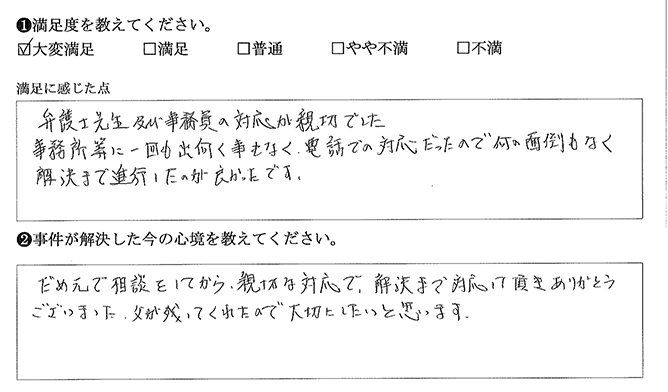 ❶満足度を教えてください。
☑大変満足 □満足 □普通 □やや不満 □不満
満足に感じた点
弁護士先生及び事務員の対応が親切でした
事務所等に一回も出向く事もなく、電話での対応だったので何の面倒もなく
解決まで進行したのが良かったです。
❷事件が解決した今の心境を教えてください。
だめ元で相談をしてから、親切な対応で、解決まで対応して頂きありがとう
ございました。父が残してくれたので大切にしたいと思います。